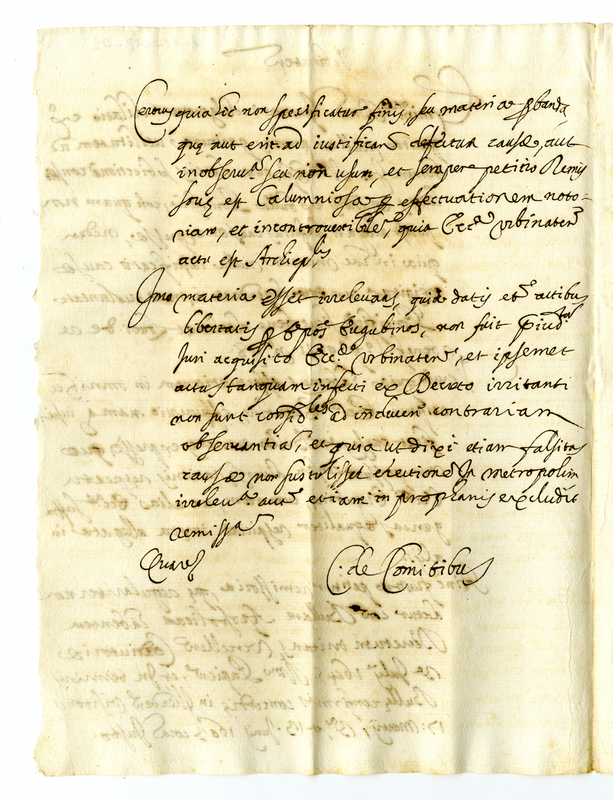 Tertius quia hîc non specificatur finis, seu materia probanda
quæ aut erit ad iustificanᵈ defectum causæ, aut
inobservᵃ seu non usum, et semper petitio Remis
soriæ est Calumniosa effectuationem noto-
riam, et incontrovertibilem, quia Eccᵃ Urbinatenˢ
actu est Archiepˡⁱˢ
Imo materia esset irrelevans, quia datis etᵐ actibus
libertatis p Epos Eugubinos, non fuit præiudᵗᵘᵐ
Juri acquisito Eccᵉ Urbinatenˢ, et ipsemet
actus tanquam infecti ex Decreto irritanti
non sunt consid.ˡᵉˢ ad inducenᵈ contrariam
observantiaᵐ, et quia ut dixi etiam falsitas
causæ non sustulisset erectioneᵐ in metropolim
irrelevᵃ autᵐ etiam in prophanis excludit
remissᵃᵐ
Quare
C. de Comitibus